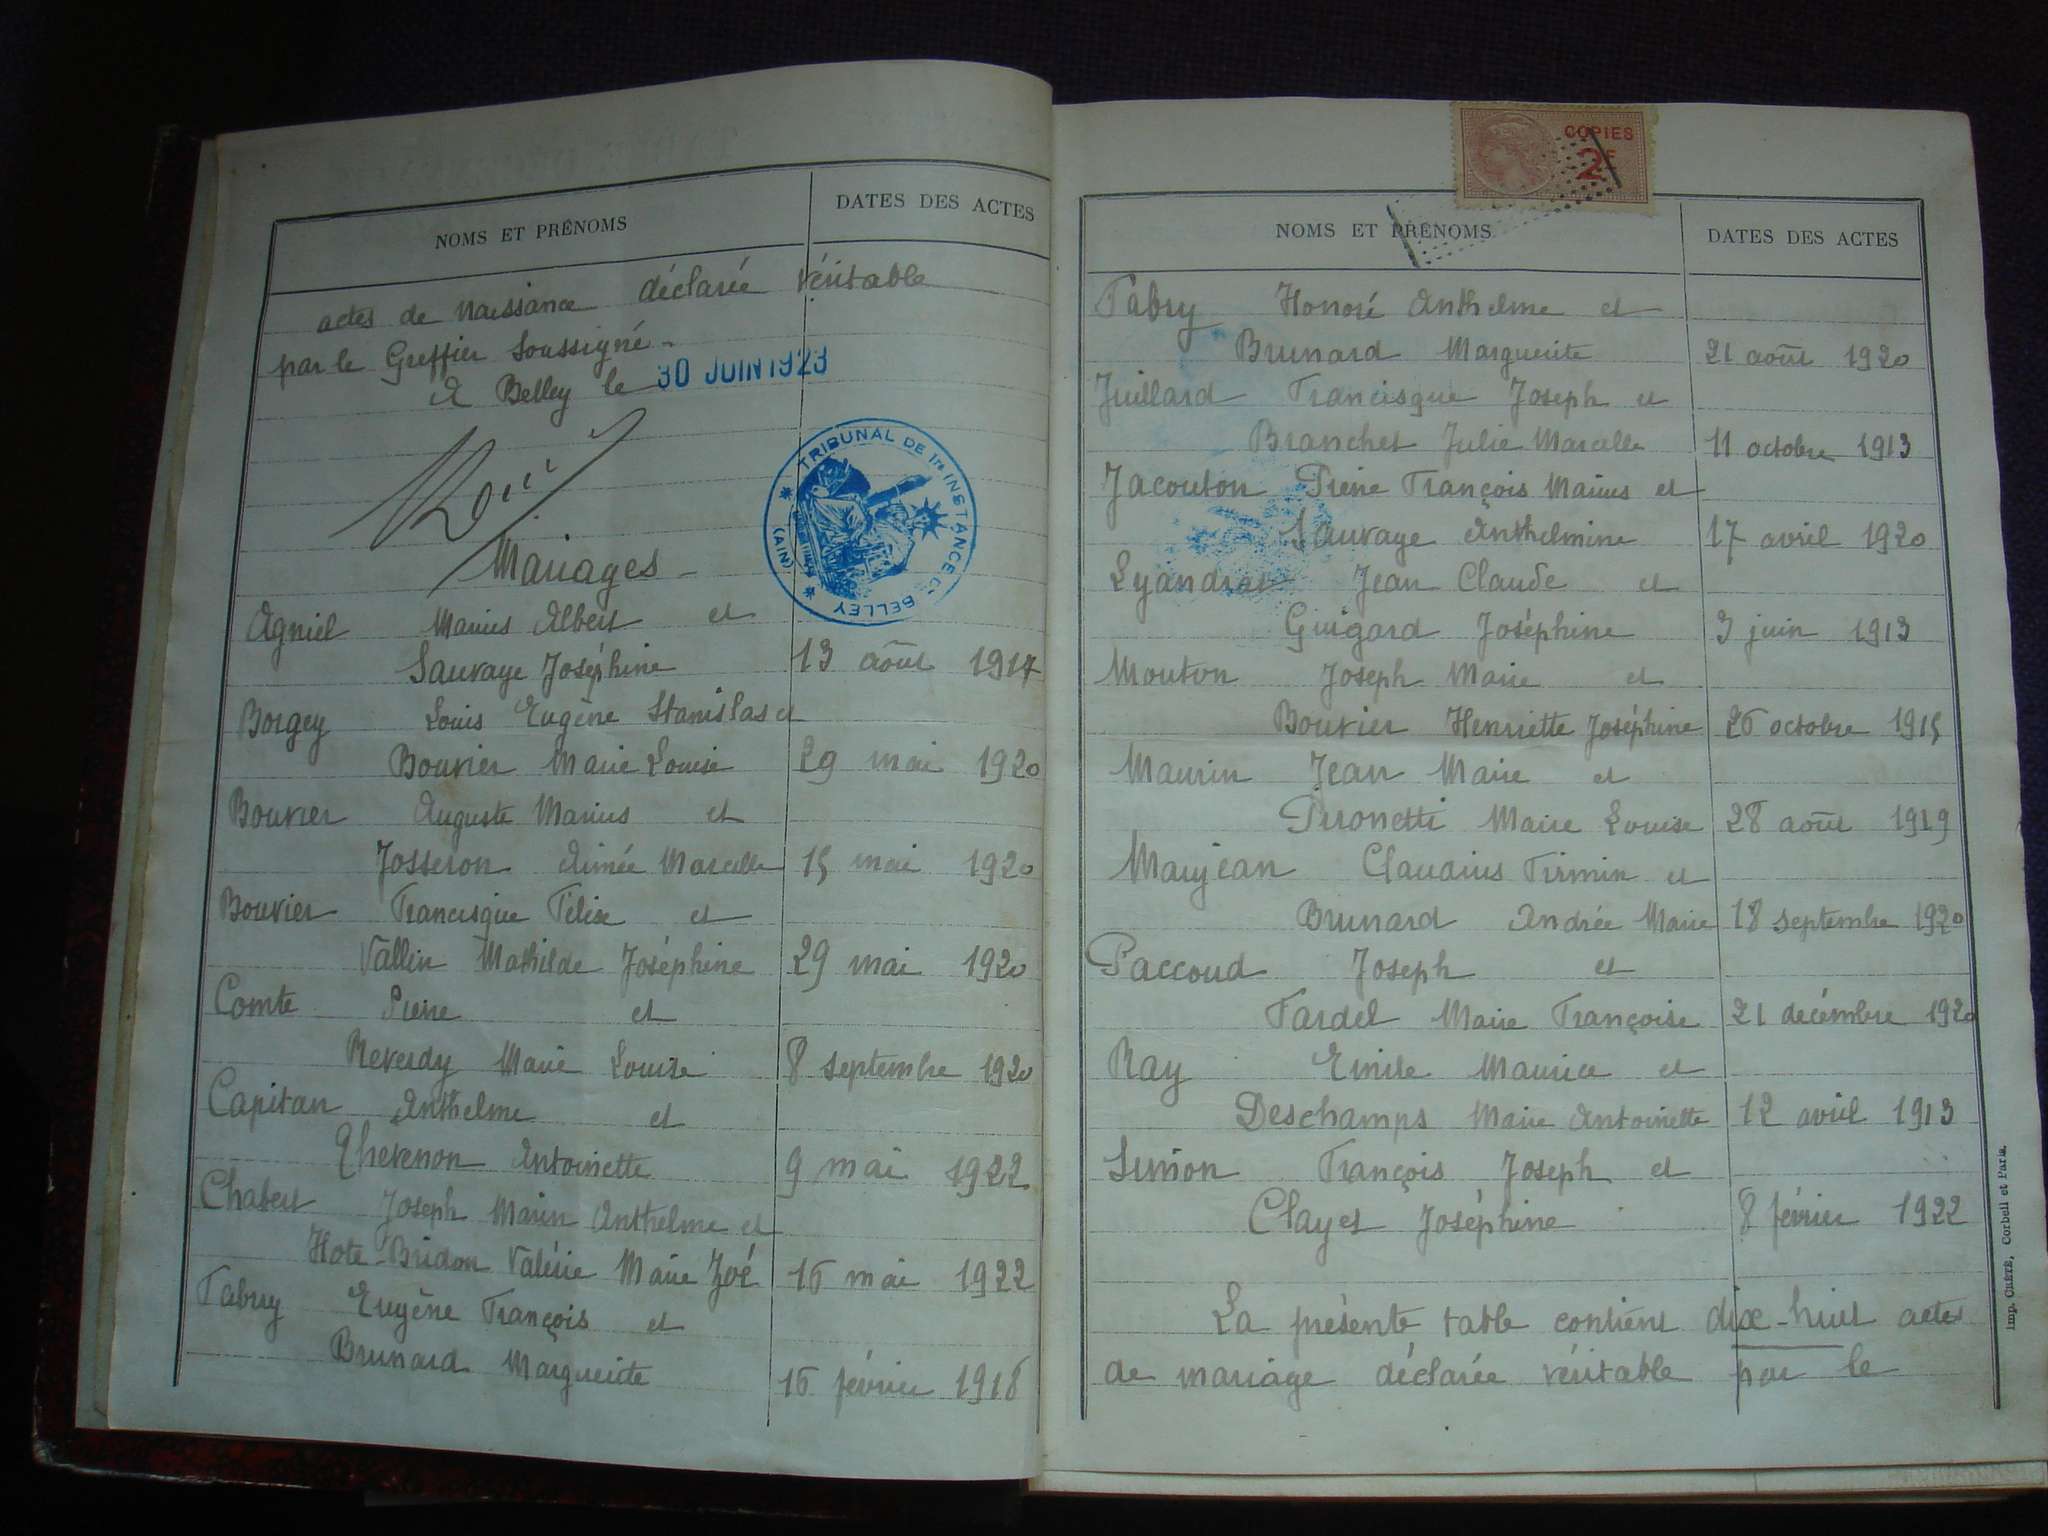 NOMS ET PRÉNOMS
DATES DES ACTES
actes de naissance déclarée véritable
par le Greffier soussigné.
A Belley le 30 JUIN 1923
TRIBUNAL DE 1re INSTANCE DE BELLEY
(AIN)
Mariages
Agniel Marius Albert et
Sauvage Joséphine 13 août 1917
Borgey Louis Eugène Stanislas et
Bouvier Marie Louise 29 mai 1920
Bouvier Auguste Marius et
Josseron Aimée Marcelle 15 mai 1920
Bouvier Francisque Félix et
Vallin Mathilde Joséphine 29 mai 1920
Comte Pierre et
Reverdy Marie Louise 8 septembre 1920
Capitan Anthelme et
Thevenon Antoinette 9 mai 1922
Chabert Joseph Marin Anthelme et
Hote-Bridon Valérie Marie Zoé 16 mai 1922
Fabry Eugène François et
Brunard Marguerite 16 février 1918
COPIES
2F
NOMS ET PRÉNOMS
DATES DES ACTES
Fabry Honoré Anthelme et
Brunard Marguerite 21 août 1920
Juillard Francisque Joseph et
Branchet Julie Marcelle 11 octobre 1913
Jacouton Pierre François Marius et
Sauvage Anthelmine 17 avril 1920
Lyandrat Jean Claude et
Guigard Joséphine 3 juin 1913
Mouton Joseph Marie et
Bouvier Henriette Joséphine 26 octobre 1915
Maurin Jean Marie et
Peronetti Marie Louise 28 août 1919
Marjean Claudius Firmin et
Brunard Andrée Marie 18 septembre 1920
Paccoud Joseph et
Fardel Marie Françoise 21 décembre 1920
Ray Emile Maurice et
Deschamps Marie Antoinette 12 avril 1913
Simon François Joseph et
Clayet Joséphine 8 février 1922
La présente table contient dix-huit actes
de mariage déclarée véritable par le
Imp. CRÉTÉ, Corbeil et Paris.